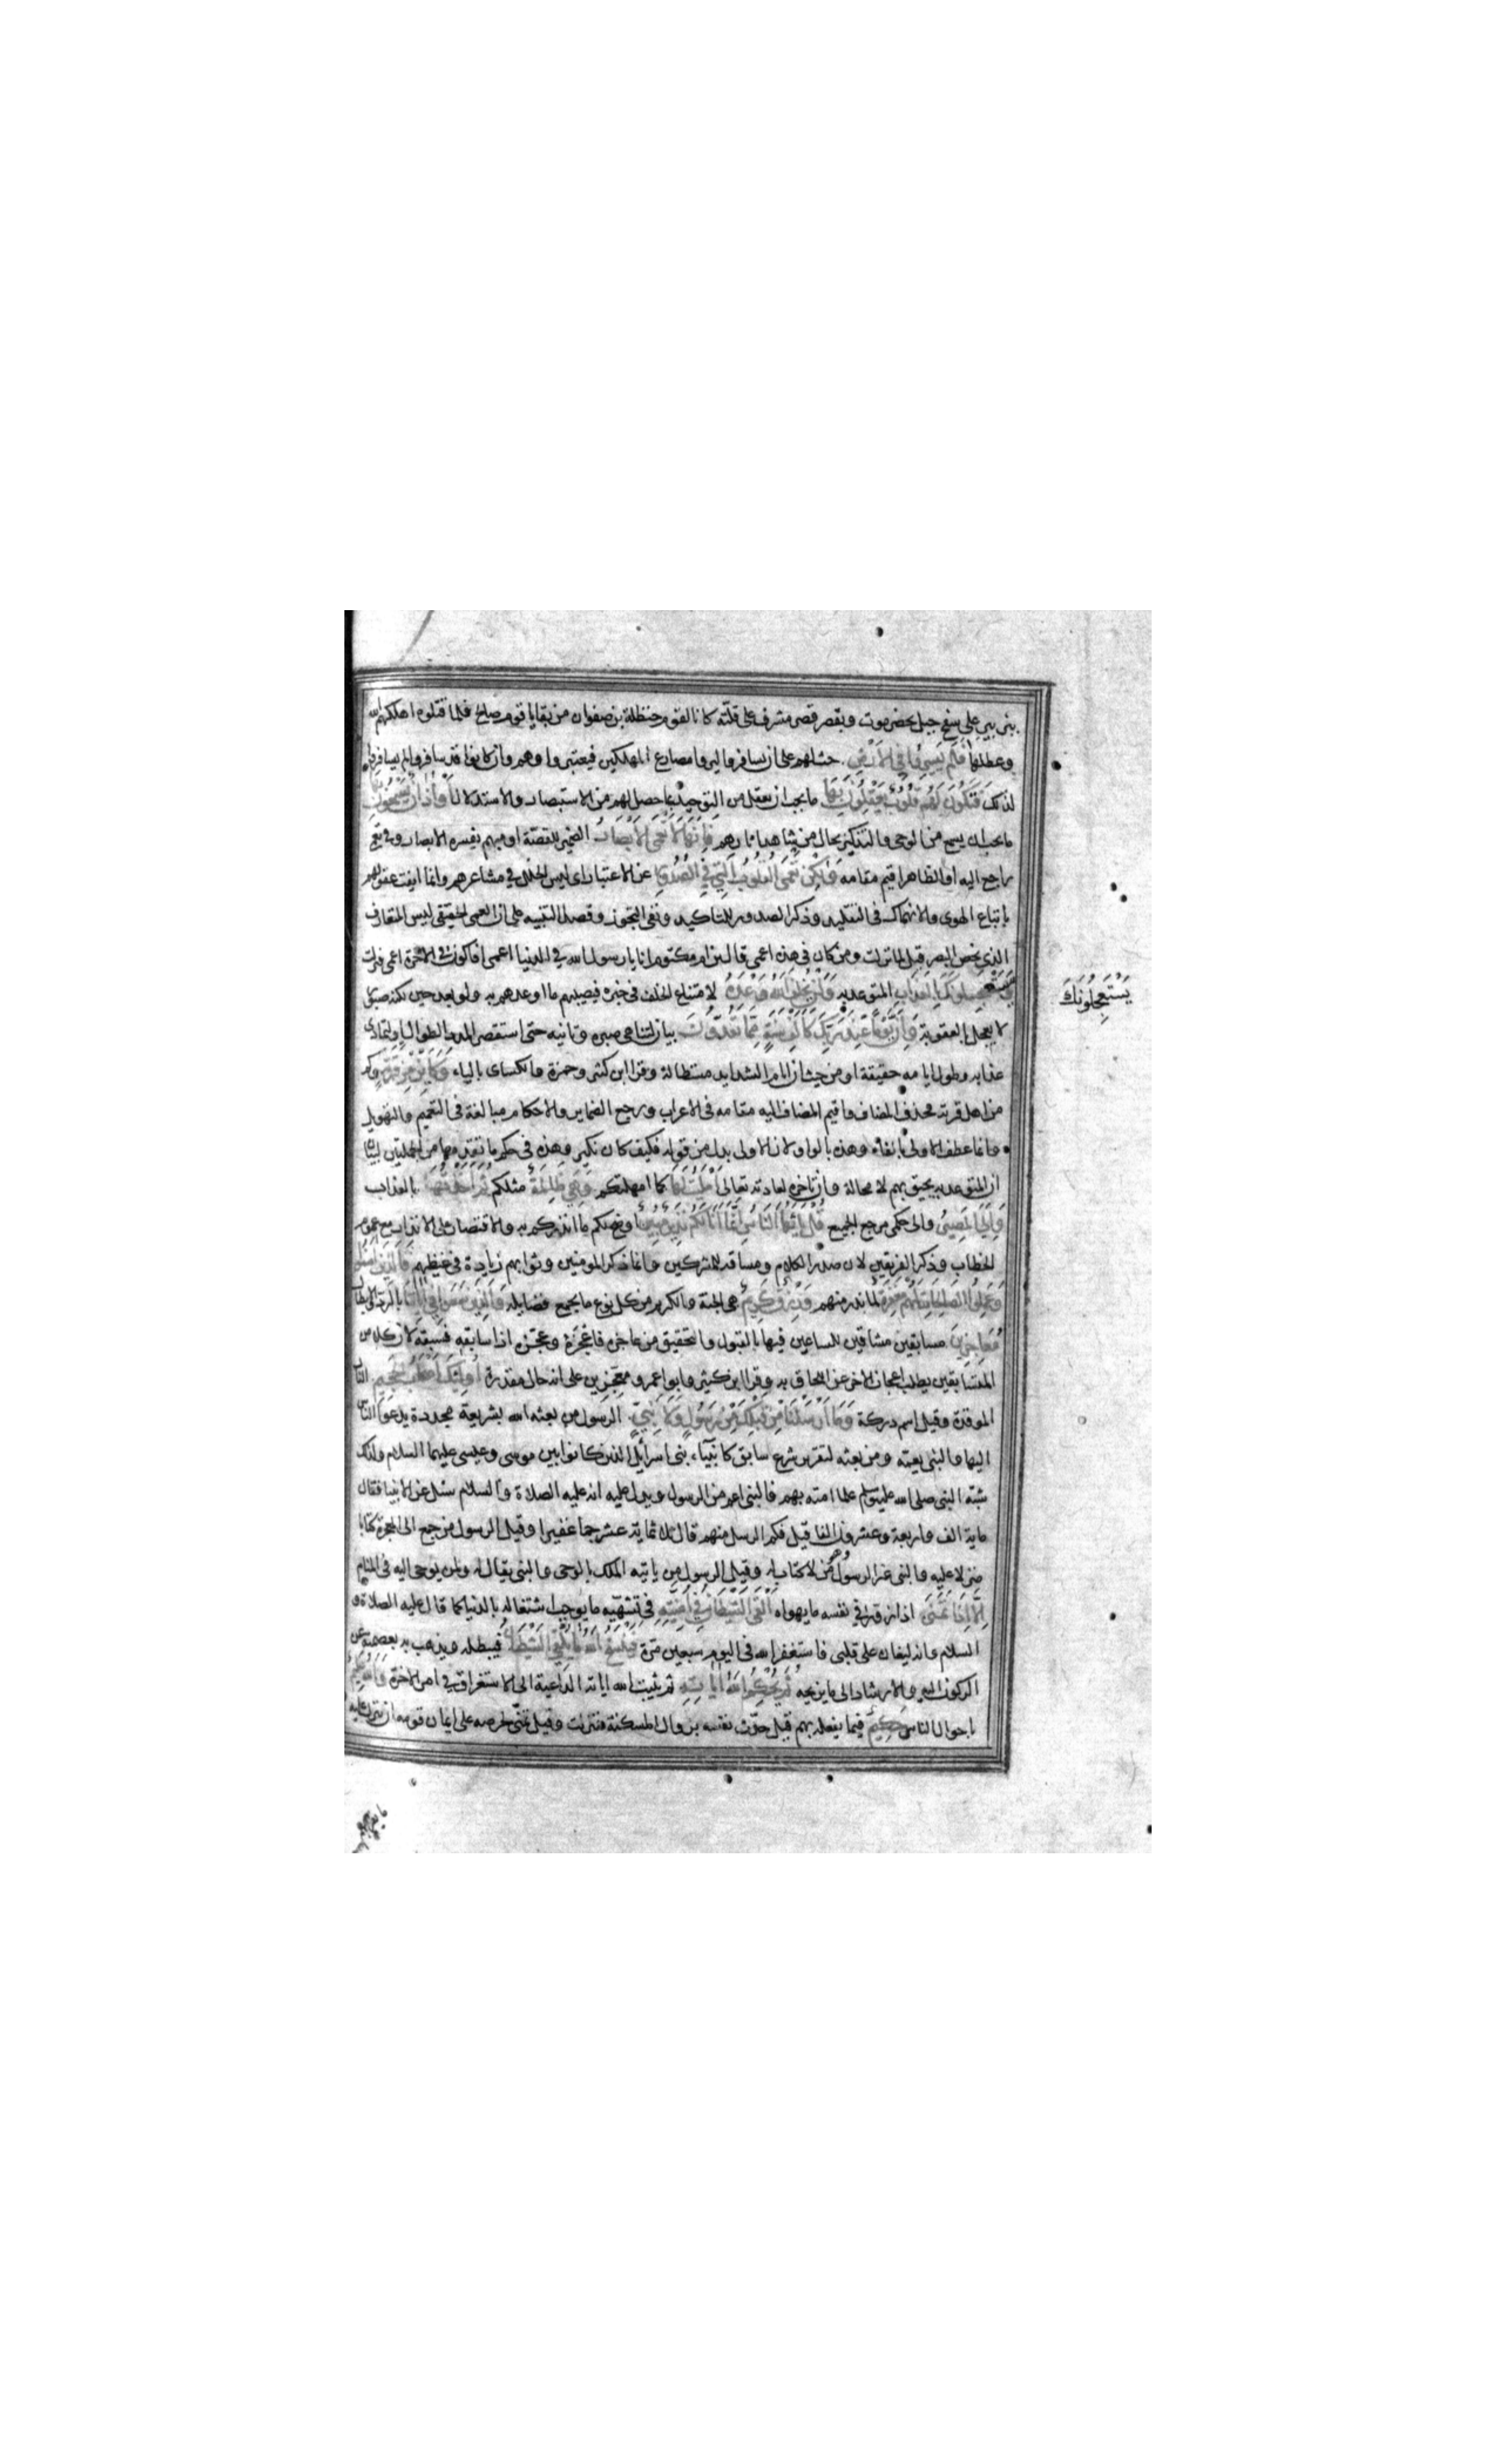 ببئر بئر على سفح جبل بحضرموت وبقصر قصر مشرف على قلته كانا لقوم حنظلة بن صفوان من بقايا قوم صالح فلما قتلوه اهلكهم الله
وعطلها افلم يسيروا في الارض حث لهم على ان يسافروا ليروا مصارع المهلكين فيعتبروا وهم وان كانوا قد سافروا لم يسافروا
لذلك فتكون لهم قلوب يعقلون بها ما يجب ان يعقل من التوحيد بما حصل لهم من الاستبصار والاستدلال او اذان يسمعون بها
ما يجب ان يسمع من الوحي والتذكير بحال من شاهد اثارهم فانها لا تعمى الابصار الضمير للقصة او مبهم يفسره الابصار وفي تعمى
راجع اليه او الظاهر اقيم مقامه ولكن تعمى القلوب التي في الصدور عن الاعتبار اي ليس الخلل في مشاعرهم وانما ايفت عقولهم
باتباع الهوى والانهماك في التقليد وذكر الصدور للتاكيد ونفي التجوز وفصل التنبيه على ان العمى الحقيقي ليس المتعارف
الذي يخص البصر قيل لما نزلت ومن كان في هذه اعمى قال ابن ام مكتوم انا يا رسول الله في الدنيا اعمى افاكون في الاخرة اعمى فنزلت
ويستعجلونك بالعذاب المتوعد به ولن يخلف الله وعده لامتناع الخلف في خبره فيصيبهم ما اوعدهم به ولو بعد حين لكنه صبور
يستعجلونك
لا يعجل بالعقوبة وان يوما عند ربك كالف سنة مما تعدون بيان لتناهي صبره وتانيه حتى استقصر المدد الطوال او لتمادى
عذابه وطول ايامه حقيقة او من حيث ان ايام الشدايد مستطالة وقرا ابن كثير وحمزة والكساي بالياء وكاين من قرية وكم
من اهل قرية فحذف المضاف واقيم المضاف اليه مقامه في الاعراب ورجع الضماير والاحكام مبالغة في التعميم والتهويل
وانما عطف الاولى بالفاء وهذه بالواو لان الاولى بدل من قوله فكيف كان نكير وهذه في حكم ما تقدمها من الجملتين لبيان
ان المتوعد به يحيق بهم لا محالة وان تاخره لعادته تعالى امليت لها كما امهلتكم وهي ظالمة مثلكم ثم اخذتها بالعذاب
والي المصير والى حكمي مرجع الجميع قل يا ايها الناس انما انا لكم نذير مبين اوضح لكم ما انذركم به والاقتصار على الانذار مع عموم
الخطاب وذكر الفريقين لان صدر الكلام ومساقه للمشركين وانما ذكر المومنين وثوابهم زيادة في غيظهم فالذين امنوا
وعملوا الصالحات لهم مغفرة لما ندر منهم ورزق كريم هي الجنة والكريم من كل نوع ما يجمع فضايله والذين سعوا في اياتنا بالرد والابطال
معاجزين مسابقين مشاقين للساعين فيها بالقبول والتحقيق من عاجزه فاعجزه وعجزه اذا سابقه فسبقه لان كلا من
المتسابقين يطلب اعجاز الاخر عن اللحاق به وقرا ابن كثير وابو عمرو معجزين على انه حال مقدرة اولئك اصحاب الجحيم النار
الموقدة وقيل اسم دركة وما ارسلنا من قبلك من رسول ولا نبي الرسول من بعثه الله بشريعة مجددة يدعوا الناس
اليها والنبي يعمه ومن بعثه لتقرير شرع سابق كانبياء بني اسرائيل الذين كانوا بين موسى وعيسى عليهما السلام ولذلك
شبه النبي صلى الله عليه وسلم علما امته بهم فالنبي اعم من الرسول ويدل عليه انه عليه الصلاة والسلام سئل عن الانبيا فقال
ماية الف واربعة وعشرون الفا قيل فكم الرسل منهم قال ثلاثماية وثلاثة عشر جما غفيرا وقيل الرسول من جمع الى المعجزة كتابا
منزلا عليه والنبي غير الرسول من لا كتاب له وقيل الرسول من ياتيه الملك بالوحي والنبي يقال له ولمن يوحى اليه في المنام
الا اذا تمنى اذا زور في نفسه ما يهواه القى الشيطان في امنيته في تشهيه ما يوجب اشتغاله بالدنيا كما قال عليه الصلاة و
السلام وانه ليغان على قلبي فاستغفر الله في اليوم سبعين مرة فينسخ الله ما يلقي الشيطان فيبطله ويذهب به بعصمته عن
الركون اليه والارشاد الى ما يزيحه ثم يحكم الله اياته ثم يثبت الله اياته الداعية الى الاستغراق في امر الاخرة والله عليم
باحوال الناس حكيم فيما يفعله بهم قيل حدث نفسه بزوال المسكنة فنزلت وقيل تمنى لحرصه على ايمان قومه ان ينزل عليه
ما يقربهم